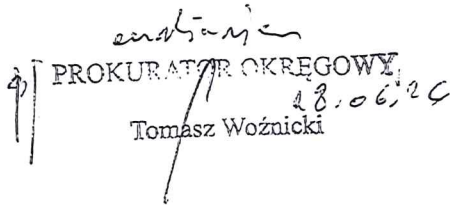 PROKURATOR OKRĘGOWY
28.06.24
Tomasz Woźnicki